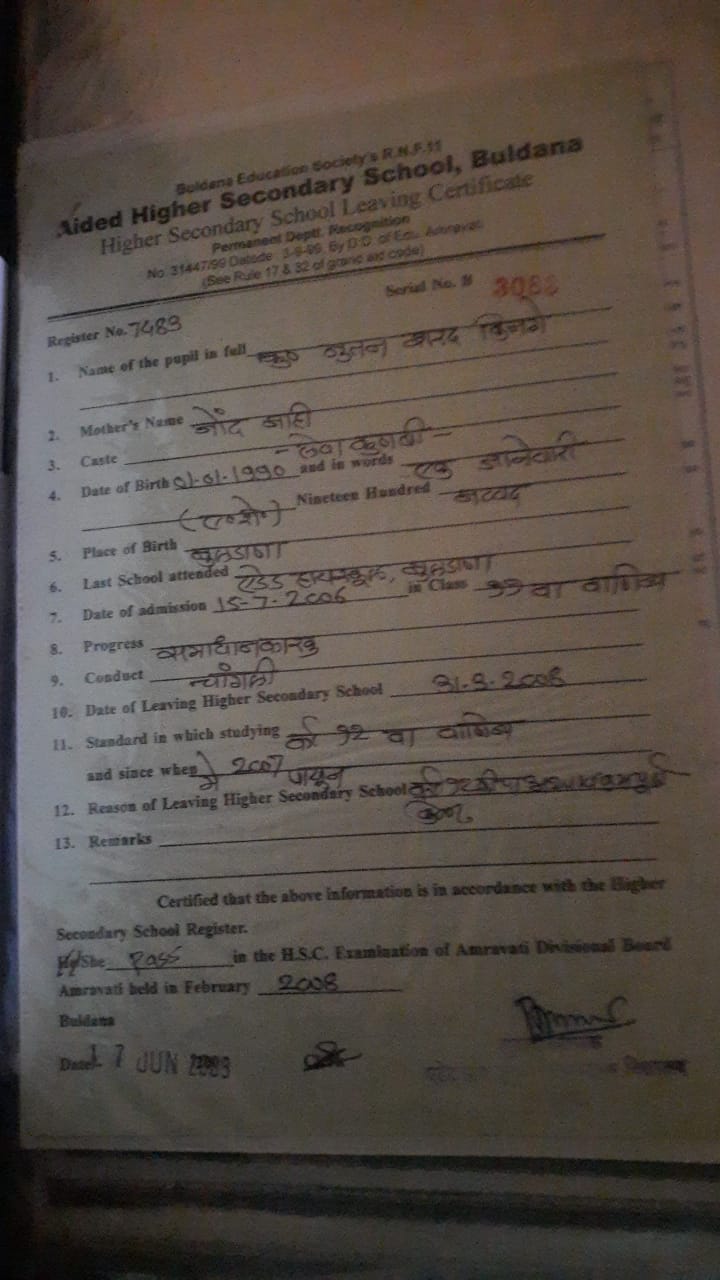 Buldana Education Society's R.N.F.11
Aided Higher Secondary School, Buldana
Higher Secondary School Leaving Certificate
Permanent Deptt. Recognition
No. 31447/99 Datode 3-9-99. By D.D. of Edu. Amravati
(See Rule 17 & 32 of grand aid code)
Serial No. B 3083
Register No. 7483
1. Name of the pupil in full कु० नुतन शरद
2. Mother's Name नोंद नाही
3. Caste - लेवा कुणबी -
4. Date of Birth 01-01-1990 and in words एक जानेवारी
Nineteen Hundred नव्वद
5. Place of Birth बुलडाणा
6. Last School attended एडेड हायस्कूल, बुलडाणा
7. Date of admission 15-7-2006 in Class ११ वा वाणिज्य
8. Progress समाधानकारक
9. Conduct चांगली
10. Date of Leaving Higher Secondary School 31-3-2008
11. Standard in which studying वर्ग १२ वा वाणिज्य
and since when 2007 पासून
12. Reason of Leaving Higher Secondary School
13. Remarks
Certified that the above information is in accordance with the Higher
Secondary School Register.
He/She Pass in the H.S.C. Examination of Amravati Divisional Board
Amravati held in February 2008
Buldana
Date 17 JUN